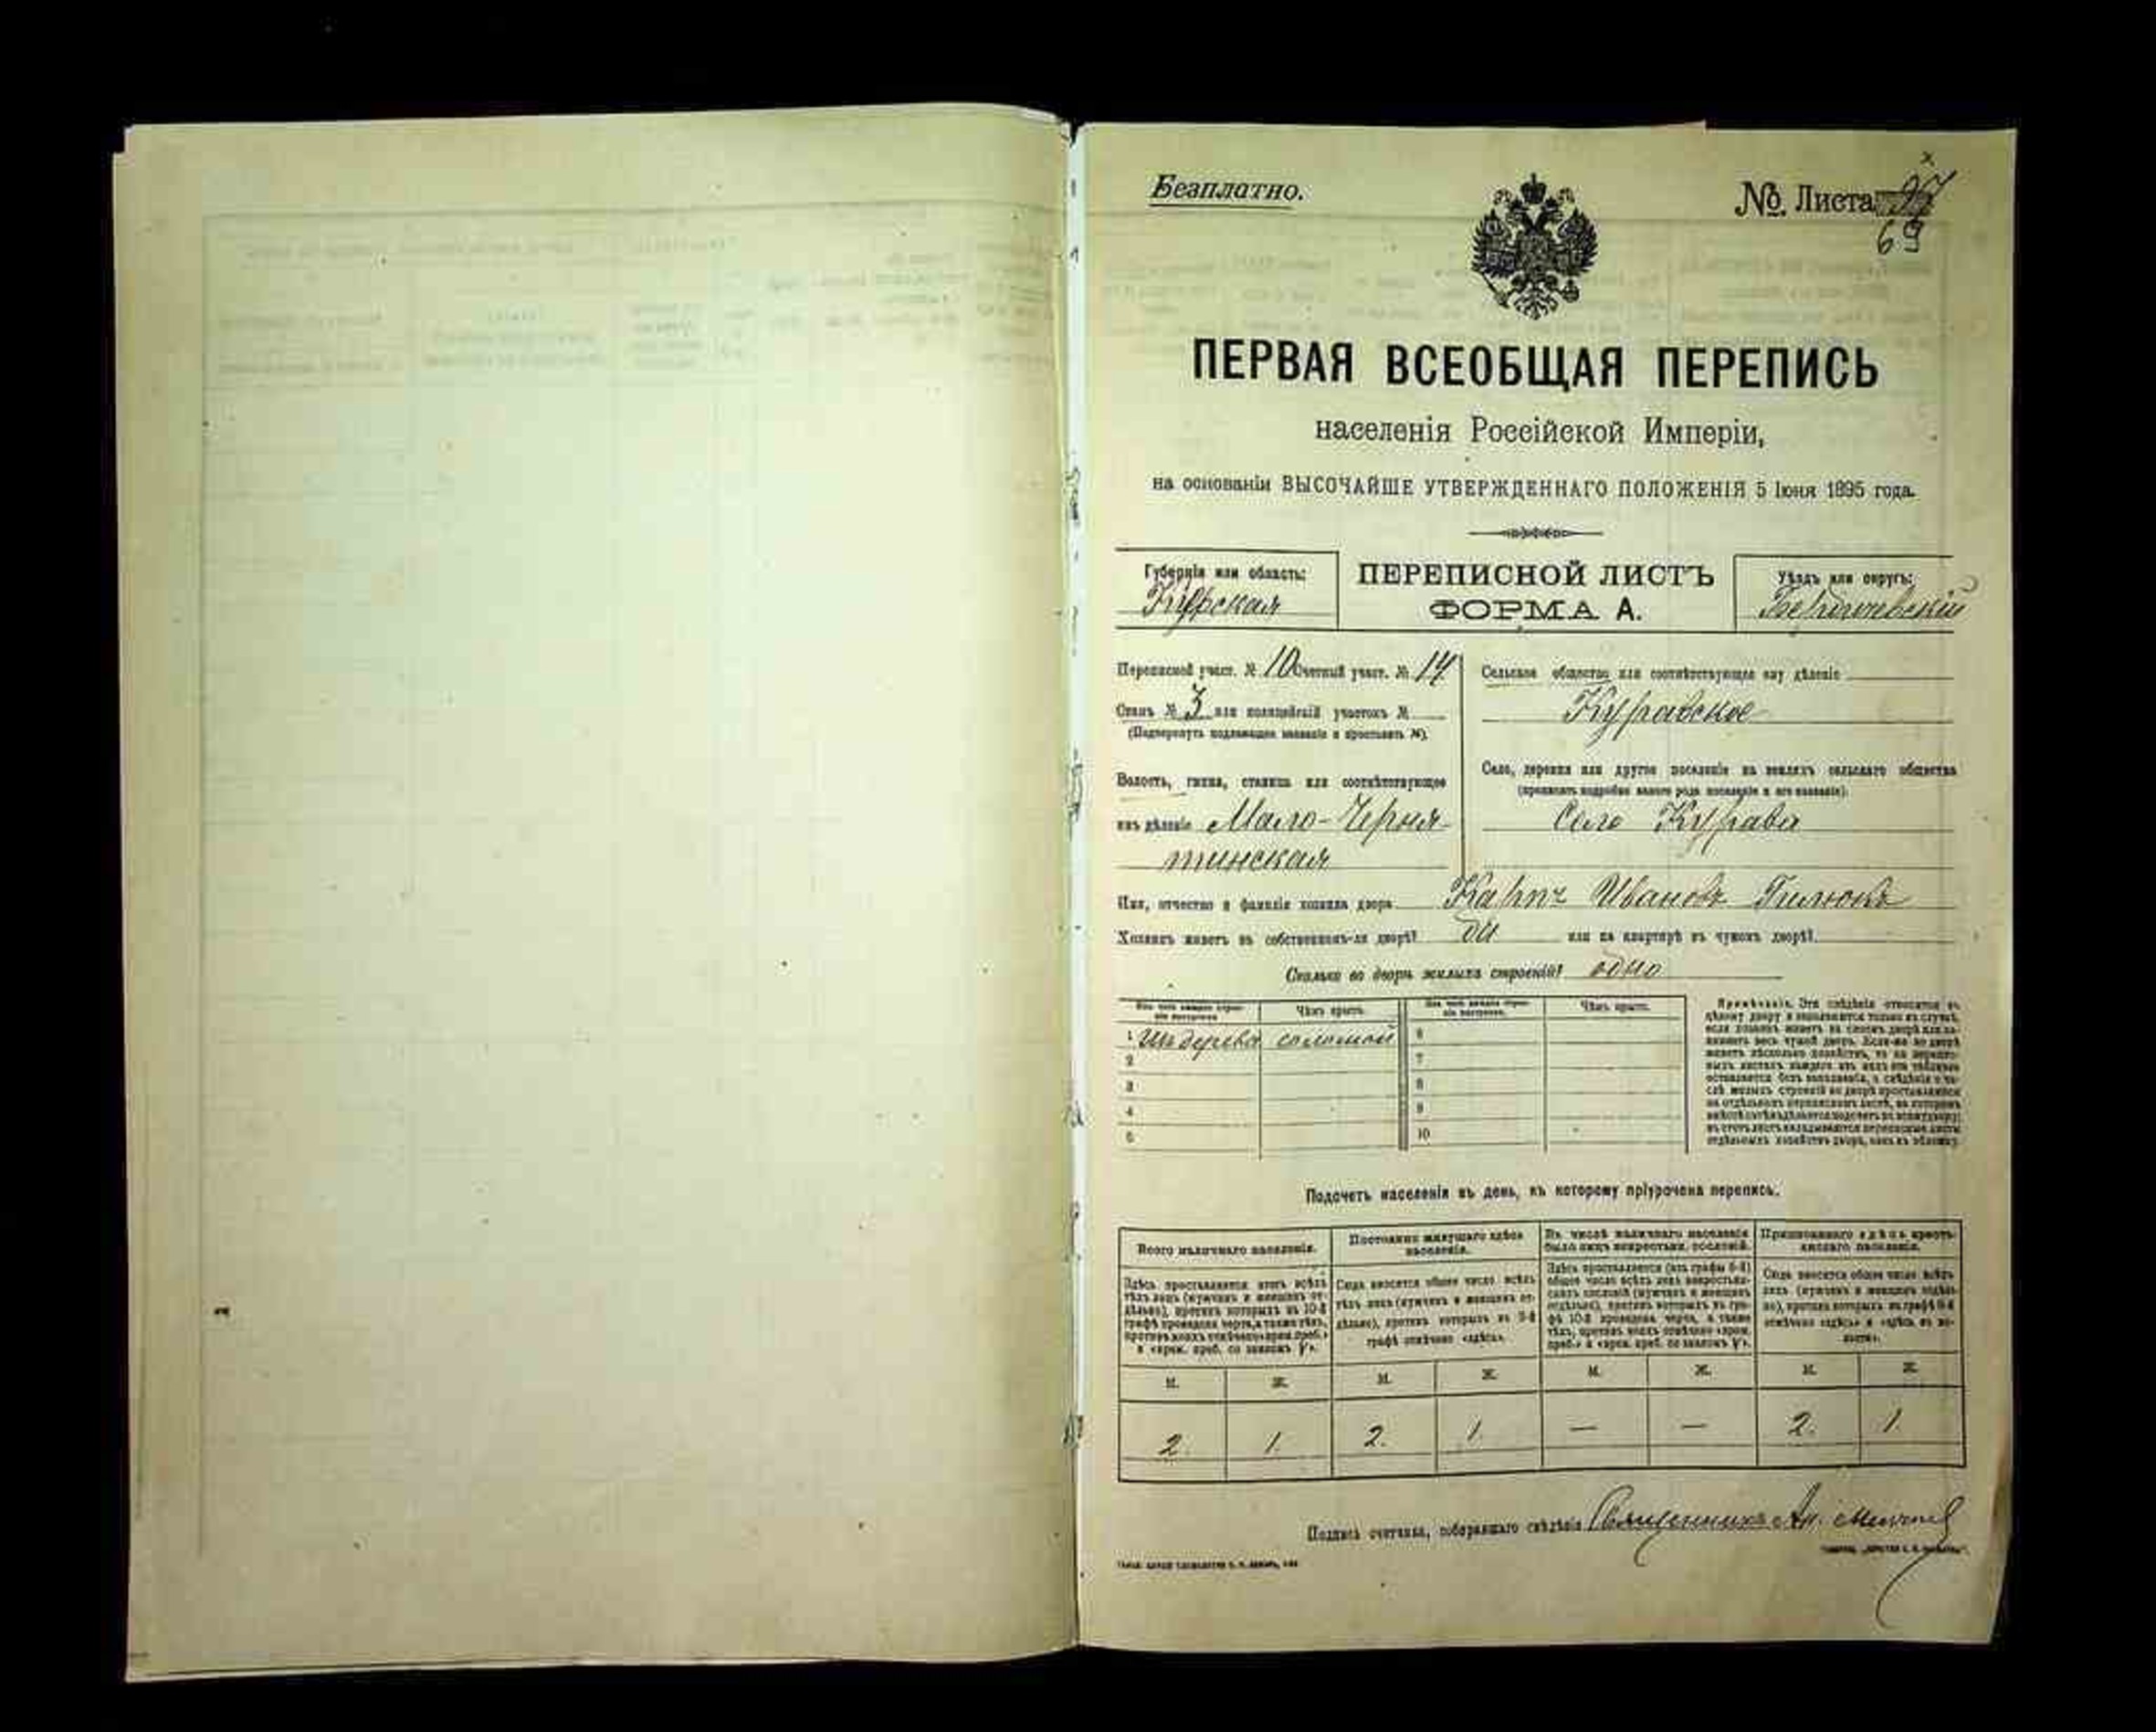 Безплатно.
№. Листа 97
69
ПЕРВАЯ ВСЕОБЩАЯ ПЕРЕПИСЬ
населенія Россійской Имперіи,
на основаніи ВЫСОЧАЙШЕ УТВЕРЖДЕННАГО ПОЛОЖЕНІЯ 5 Іюня 1895 года.
Губернія или область:
ПЕРЕПИСНОЙ ЛИСТЪ
ФОРМА А.
Уѣздъ или округъ:
Бердичевскій
Переписной участ. № 10 Счетный участ. № 14
Станъ № 3 или полицейскій участокъ №
(Подчеркнуть подлежащее названіе и проставить №).
Волость, гмина, станица или соотвѣтствующее
имъ дѣленіе Мало-Черня-
тинская
Сельское общество или соотвѣтствующее ему дѣленіе
Куравское
Село, деревня или другое поселеніе на земляхъ сельскаго общества
(прописать подробно какого рода поселеніе и его названіе).
Село Курава
Имя, отчество и фамилія хозяина двора Карпъ Ивановъ Гилюкъ
Хозяинъ живетъ въ собственномъ-ли дворѣ? да или на квартирѣ въ чужомъ дворѣ?
Сколько во дворѣ жилыхъ строеній? одно
Изъ чего каждое строеніе построено Чѣмъ крыто. Изъ чего каждое строеніе построено. Чѣмъ крыто.
1 Изъ дерева соломой 6
2 7
3 8
4 9
5 10
Примѣчаніе. Эти свѣдѣнія относятся къ
цѣлому двору и заполняются только въ случаѣ,
если хозяинъ живетъ въ своемъ дворѣ или за-
нимаетъ весь чужой дворъ. Если-же во дворѣ
живетъ нѣсколько хозяйствъ, то на перепис-
ныхъ листахъ каждаго изъ нихъ эта таблица
оставляется безъ заполненія, а свѣдѣнія о чи-
слѣ жилыхъ строеній во дворѣ проставляются
на отдѣльномъ переписномъ листѣ, на которомъ
Подсчетъ населенія въ день, къ которому пріурочена перепись.
Всего наличнаго населенія.
Здѣсь проставляется итогъ всѣхъ
тѣхъ лицъ (мужчинъ и женщинъ от-
дѣльно), противъ которыхъ въ 10-й
графѣ проведена черта, а также тѣхъ,
противъ коихъ отмѣчено «врем. преб.»
Постоянно живущаго здѣсь
населенія.
Сюда вносится общее число всѣхъ
тѣхъ лицъ (мужчинъ и женщинъ от-
дѣльно), противъ которыхъ въ 9-й
графѣ отмѣчено «здѣсь».
Въ числѣ наличнаго населенія
было лицъ некрестьян. сословій.
Здѣсь проставляется (изъ графы 6-й)
общее число всѣхъ лицъ некрестьян-
скихъ сословій (мужчинъ и женщинъ
отдѣльно), противъ которыхъ въ гра-
фѣ 10-й проведена черта, а также
тѣхъ, противъ коихъ отмѣчено «врем.
Приписаннаго здѣсь кресть-
янскаго населенія.
Сюда вносится общее число всѣхъ
лицъ (мужчинъ и женщинъ отдѣль-
но), противъ которыхъ въ графѣ 8-й
отмѣчено «здѣсь» и «здѣсь въ во-
лости».
М. Ж. М. Ж. М. Ж. М. Ж.
2 1. 2. 1 — — 2. 1.
Подпись счетчика, собиравшаго свѣдѣнія Священникъ Ан.